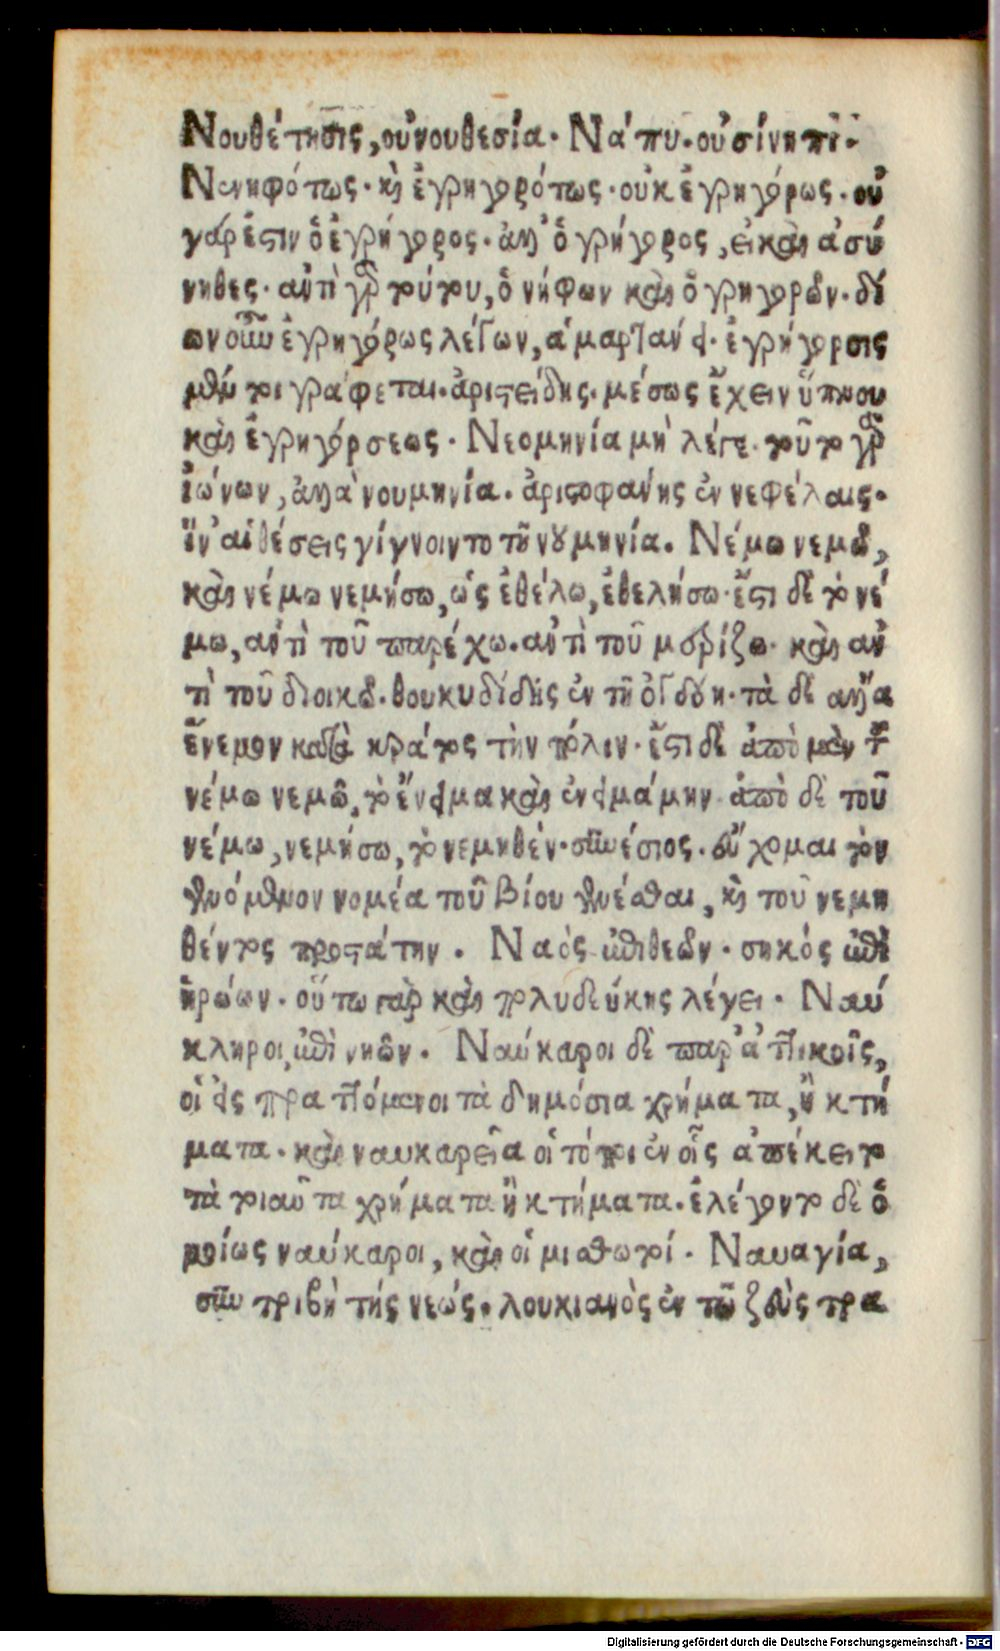 Νουθέτησις, οὐ νουθεσία. Νάπυ. οὐ σίνηπι.
Νενηφότως. κὶ ἐγρηγορότως. οὐκ ἐγρηγόρως. οὐ
γάρ ἐστιν ὁ ἐγρήγορος. ἀλλ' ὁ γρήγορος, εἰ καὶ ἀσύ
νηθες. αντὶ γὰρ τούτου, ὁ νήφων καὶ ὁ γρηγορῶν. δι
ων οὖν ἐγρηγόρως λέγων, ἁμαρτάνει. ἐγρήγορσις
μέντοι γράφεται. ἀριστείδης. μέσως ἔχειν ὕπνου
καὶ ἐγρηγόρσεως. Νεομηνία μὴ λέγε. τοῦτο γὰρ
ἰώνων, ἀλλὰ νουμηνία. ἀριστοφάνης ἐν νεφέλαις.
ἵν' αἱ θέσεις γίγνοιντο τῇ νουμηνία. Νέμω νεμῶ,
καὶ νέμω νεμήσω, ὡς ἐθέλω, ἐθελήσω. ἔστι δὲ τὸ νέ
μω, αντὶ τοῦ παρέχω. αντὶ τοῦ μερίζω. καὶ αν
τὶ τοῦ διοικῶ. θουκυδίδης ἐν τῇ ὀγδόη. τὰ δὲ ἀλλα
ἔνεμον κατὰ κράτος τὴν πόλιν. ἔστι δὲ ἀπὸ μὲν τοῦ
νέμω νεμῶ, τὸ ἔνειμα καὶ ἐνειμάμην. ἀπὸ δὲ τοῦ
νέμω, νεμήσω, τὸ νεμηθέν. συνέσιος. εὔχομαι τὸν
γενόμενον νομέα τοῦ βίου γενέσθαι, κὶ τοῦ νεμη
θέντος προστάτην. Ναὸς ἐπὶ θεῶν. σηκός ἐπὶ
ἡρώων. οὕτω γὰρ καὶ πολυδεύκης λέγει. Ναύ
κληροι, ἐπὶ νηῶν. Ναύκαροι δὲ παρ' ἀττικοῖς,
οἱ εἰσπραττόμενοι τὰ δημόσια χρήματα, ἢ κτή
ματα. καὶ ναυκαρεῖα οἱ τόποι ἐν οἷς ἀπέκειτο
τὰ τοιαῦτα χρήματα ἢ κτήματα. ἐλέγοντο δὲ ὁ
μοίως ναύκαροι, καὶ οἱ μισθωτοί. Ναυαγία,
συντριβὴ τῆς νεώς. λουκιανὸς ἐν τῶ ζεὺς τρα
Digitalisierung gefördert durch die Deutsche Forschungsgemeinschaft - DFG